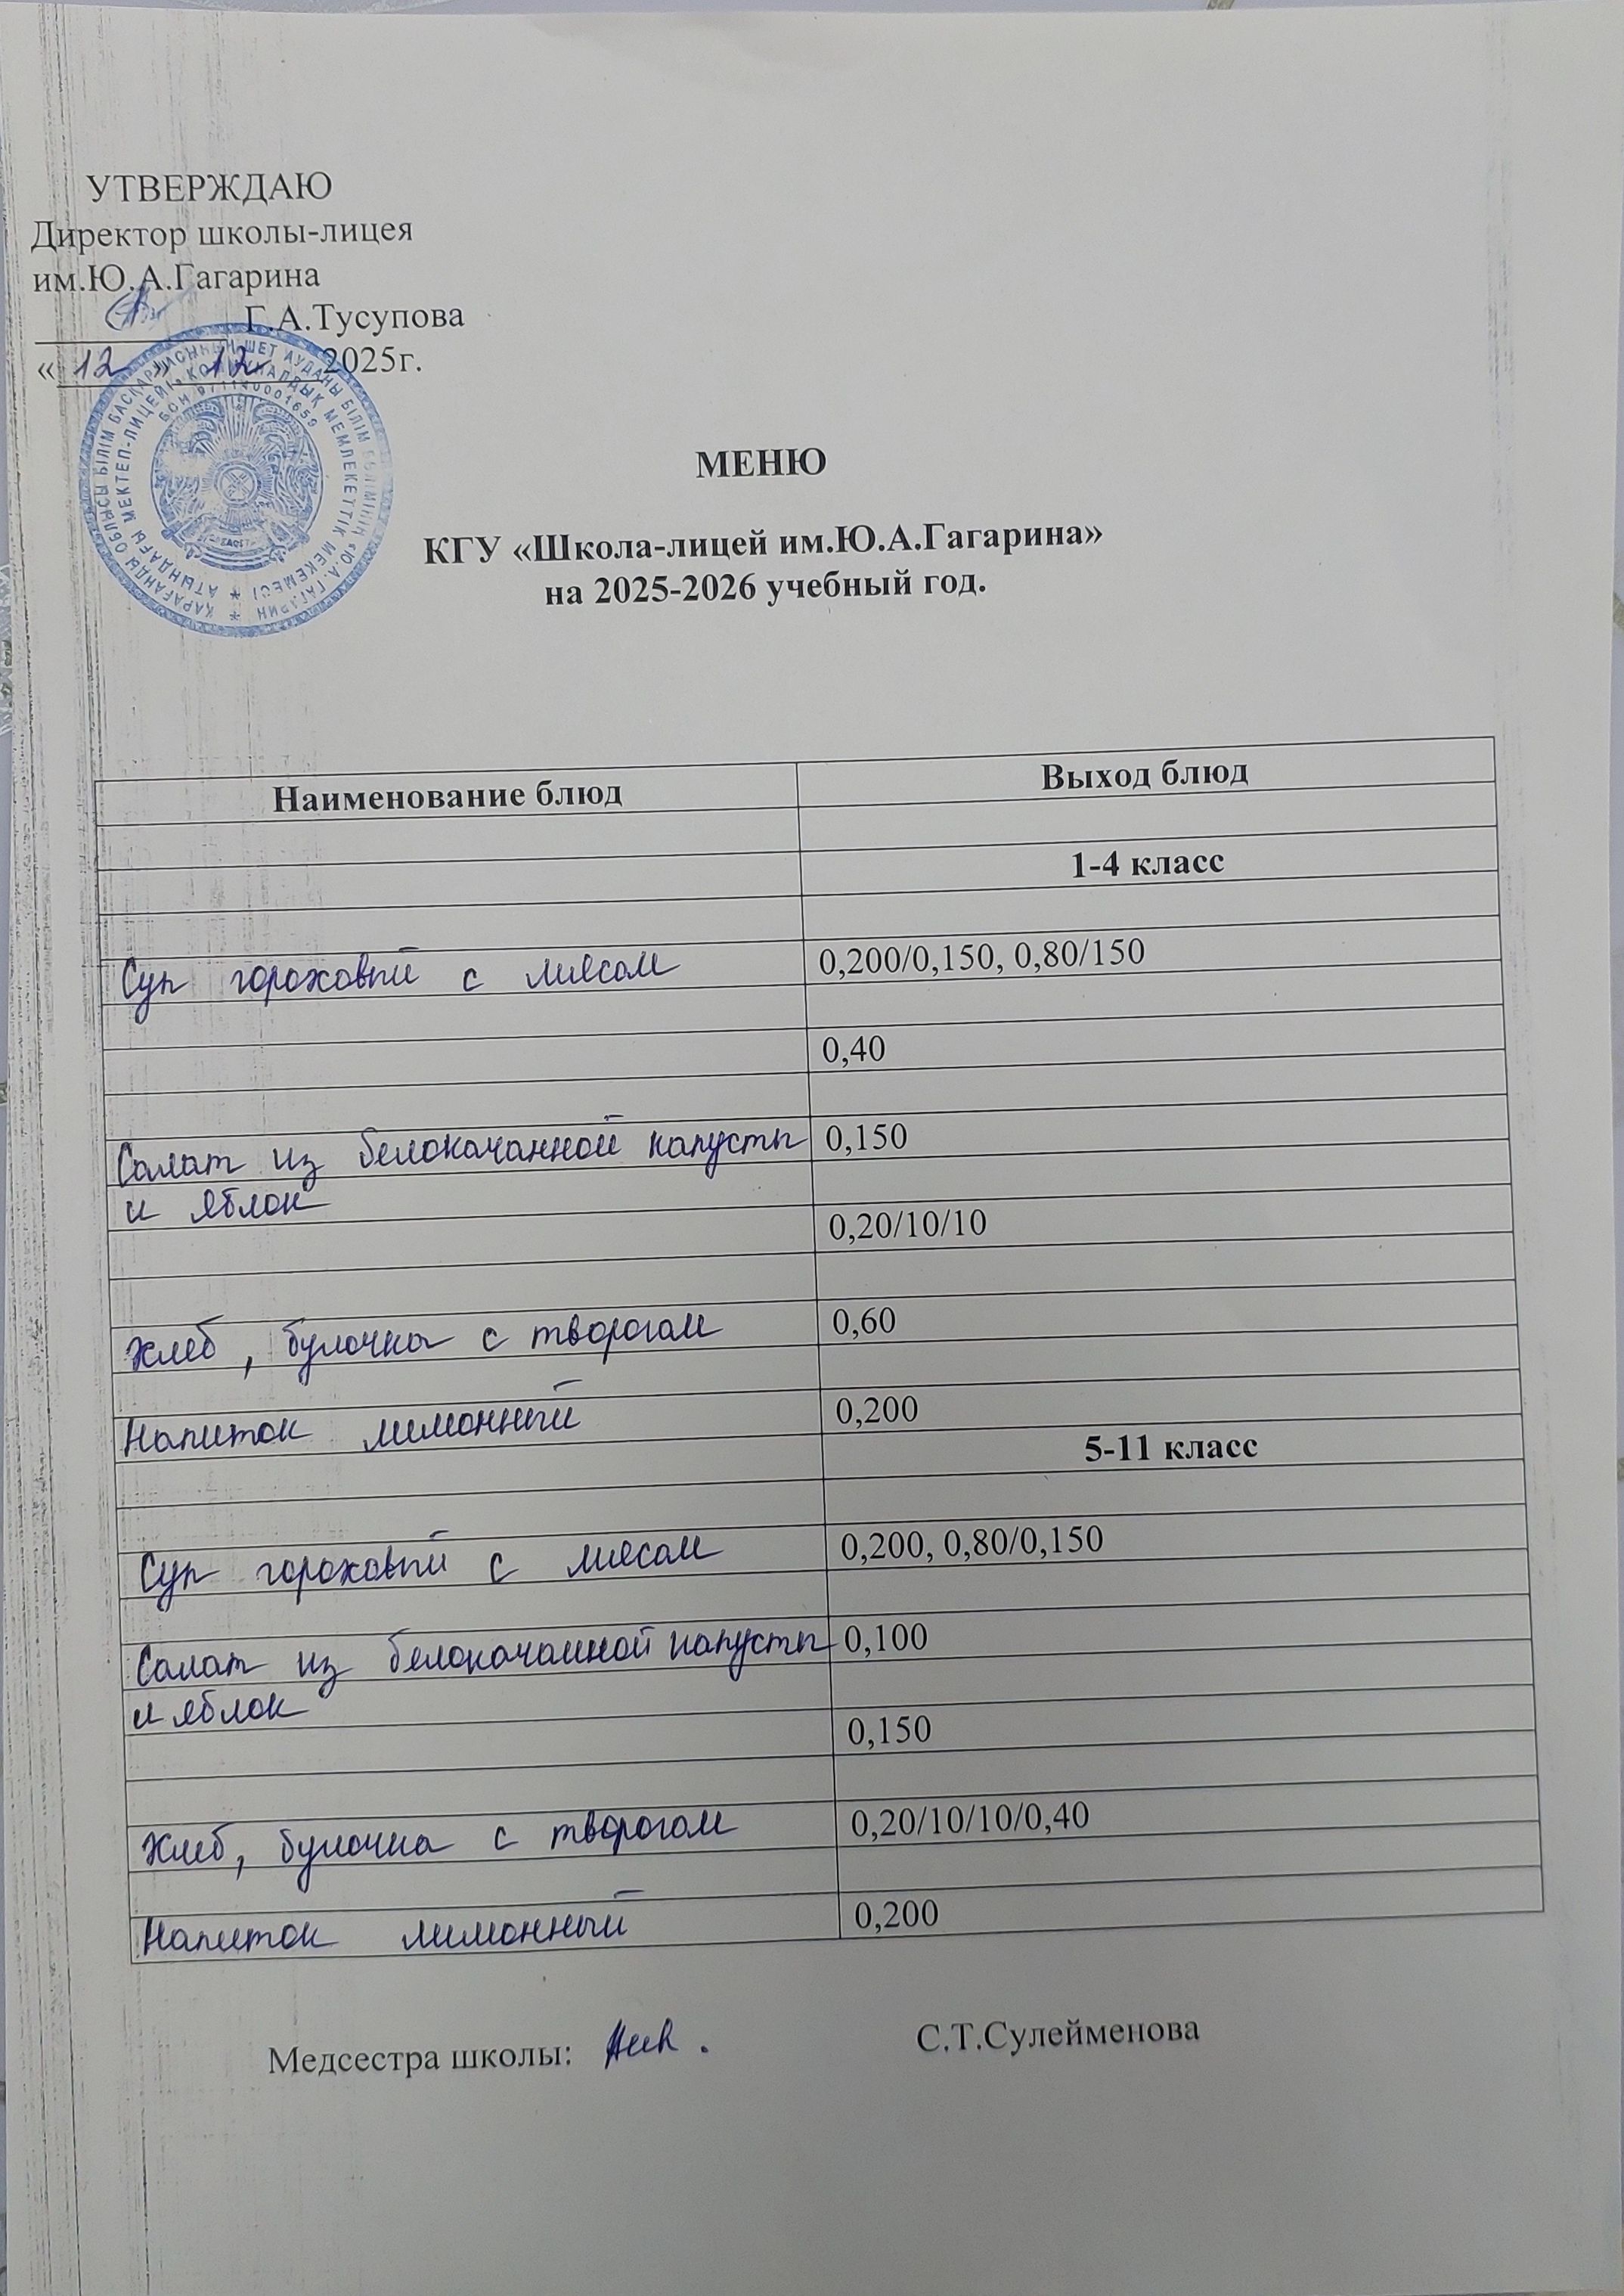 УТВЕРЖДАЮ
Директор школы-лицея
им.Ю.А.Гагарина
Г.А.Тусупова
« 12 » 12 2025г.
ҚАРАҒАНДЫ ОБЛЫСЫ БІЛІМ БАСҚАРМАСЫНЫҢ ШЕТ АУДАНЫ БІЛІМ БӨЛІМІНІҢ «Ю.А. ГАГАРИН
АТЫНДАҒЫ МЕКТЕП-ЛИЦЕЙІ» КОММУНАЛДЫҚ МЕМЛЕКЕТТІК МЕКЕМЕСІ
БСН 971140001659
МЕНЮ
КГУ «Школа-лицей им.Ю.А.Гагарина»
на 2025-2026 учебный год.
Наименование блюд Выход блюд
1-4 класс
Суп гороховый с мясом 0,200/0,150, 0,80/150
0,40
Салат из белокачанной капусты 0,150
и яблок
0,20/10/10
Хлеб, булочка с творогом 0,60
Напиток лимонный 0,200
5-11 класс
Суп гороховый с мясом 0,200, 0,80/0,150
Салат из белокачанной капусты 0,100
и яблок
0,150
Хлеб, булочка с творогом 0,20/10/10/0,40
Напиток лимонный 0,200
Медсестра школы: С.Т.Сулейменова